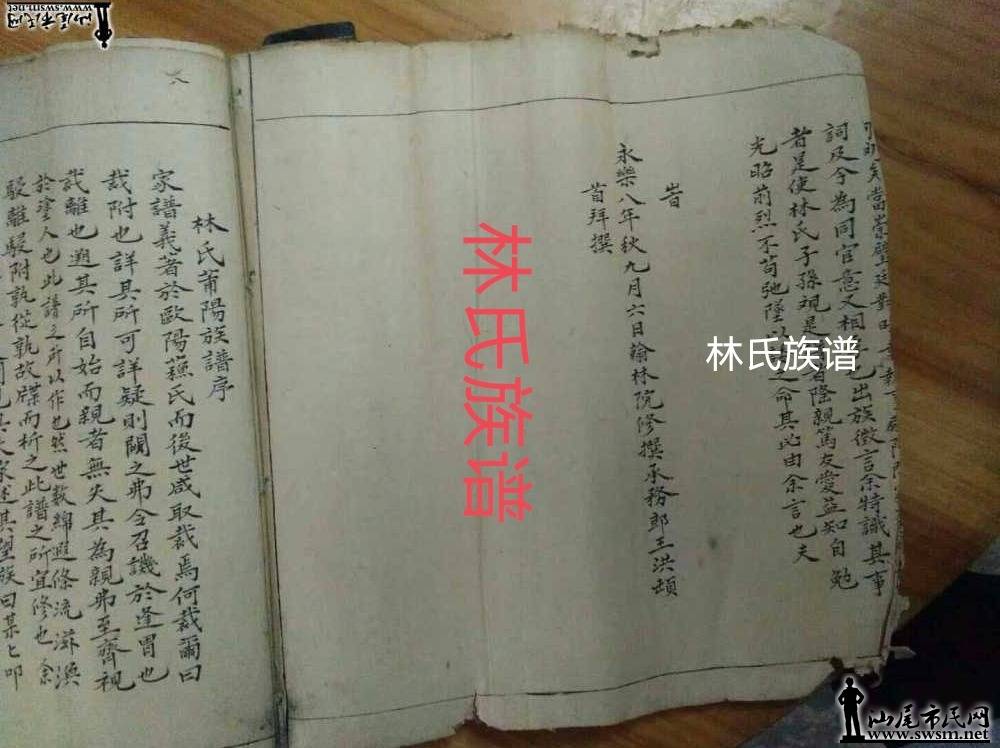 汕尾市民网
www.swsm.net
當崇壁廷對
詞及今為同官意又相 也出族微言余特識其事
者是使林氏子孫規是 者隆親篤友愛益知自勉
光昭前烈不苟弛墜 之命其必由余言也夫
旹
永樂八年秋九月六日翰林院修撰承務郎王洪頓
首拜撰
林氏莆陽族譜序
家譜義著於歐陽蘓氏而後世咸取裁焉何裁爾曰
裁附也詳其所可詳疑則闕之弗令召譏於逢冒也
裁離也遡其所自始而親者無失其為親弗至齊視
於塗人也此譜之所以作也然世数綿遐條流滋渙
駸離駸附孰從孰故牒而析之此譜之所宜修也余
家述其望族曰某七叩
林氏族谱
林氏族谱
汕尾市民网
www.swsm.net